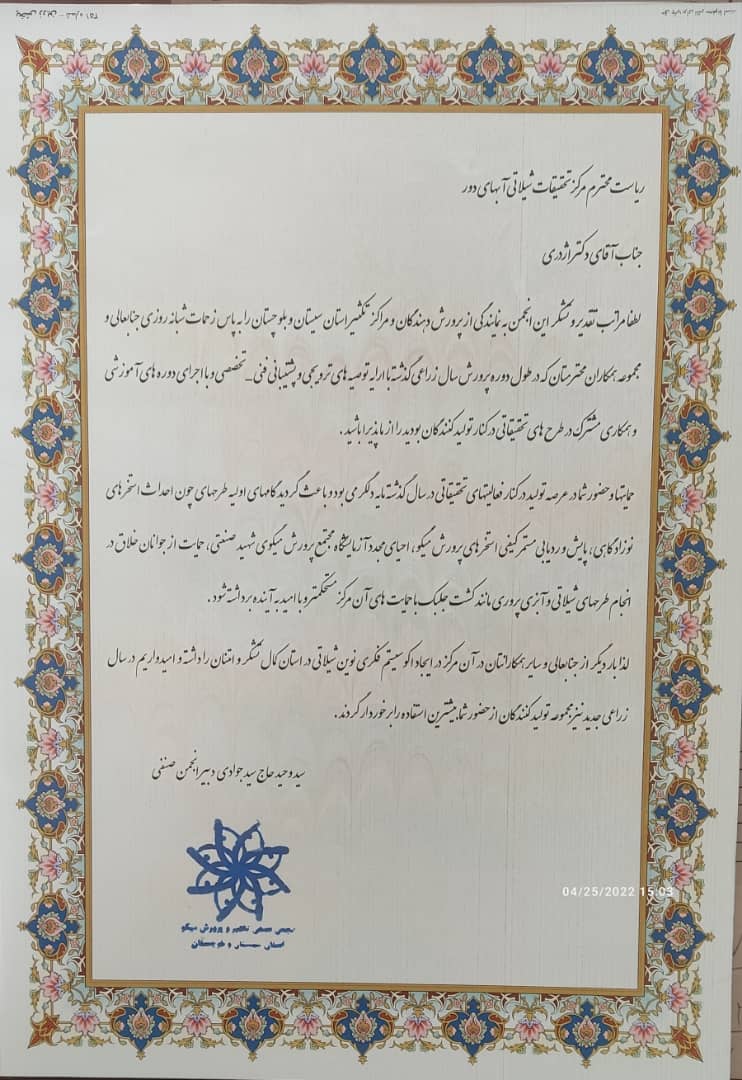 ریاست محترم مرکز تحقیقات شیلاتی آبهای دور
جناب آقای دکتر اژدری
لطفا مراتب تقدیر و تشکر این انجمن به نمایندگی از پرورش دهندگان و مراکز تکثیر استان سیستان و بلوچستان را به پاس زحمات شبانه روزی جنابعالی و
مجموعه همکاران محترمتان که در طول دوره پرورش سال زراعی گذشته با ارایه توصیه های ترویجی و پشتیبانی فنی _ تخصصی و با اجرای دوره های آموزشی
و همکاری مشترک در طرح های تحقیقاتی در کنار تولید کنندگان بودید را از ما پذیرا باشید .
حمایتها و حضور شما در عرصه تولید در کنار فعالیتهای تحقیقاتی در سال گذشته مایه دلگرمی بود و باعث گردید گامهای اولیه طرحهای چون احداث استخرهای
نوزادگاهی، پایش و ردیابی مستمر کیفی استخرهای پرورش میگو، احیای مجدد آزمایشگاه مجتمع پرورش میگوی شهید صنعتی، حمایت از جوانان خلاق در
انجام طرحهای شیلاتی و آبزی پروری مانند کشت جلبک با حمایت های آن مرکز مستحکمتر و با امید به آینده برداشته شود .
لذا بار دیگر از جنابعالی و سایر همکارانتان در آن مرکز در ایجاد اکوسیستم فکری نوین شیلاتی در استان کمال تشکر و امتنان را داشته و امیدواریم در سال
زراعی جدید نیز مجموعه تولید کنندگان از حضور شما بیشترین استفاده را برخوردار گردند .
سید وحید حاج سید جوادی دبیر انجمن صنفی
انجمن صنفی تکثیر و پرورش میگو
استان سیستان و بلوچستان
04/25/2022 15:03